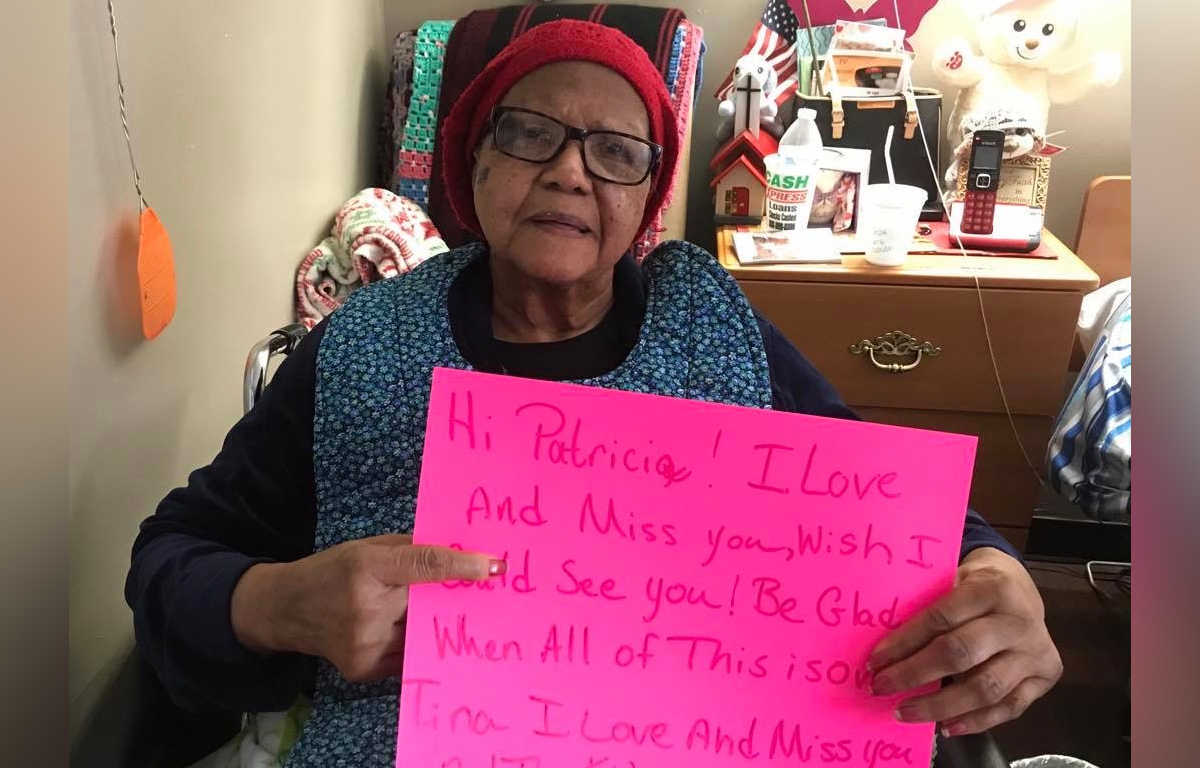 Hi Patricia! I Love
And Miss you, Wish I
Could See you! Be Glad
When All of This is
Tina I Love And Miss you
CASH
Loans
vtech
Faith